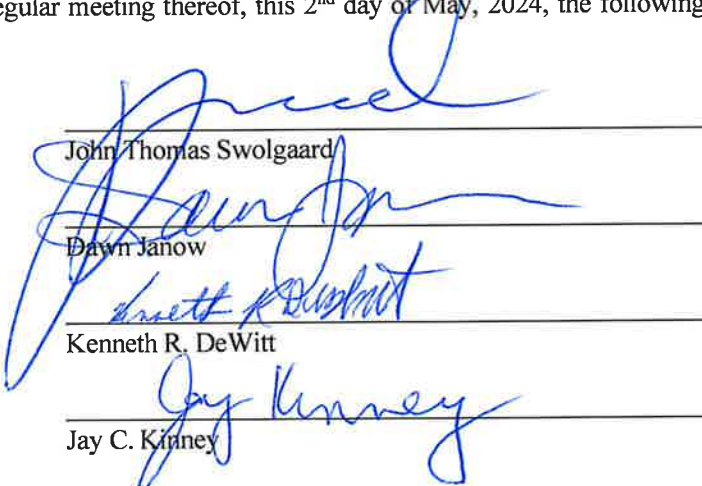 egular meeting thereof, this 2nd day of May, 2024, the following
John Thomas Swolgaard
Dawn Janow
Kenneth R. DeWitt
Jay Kinney
Jay C. Kinney